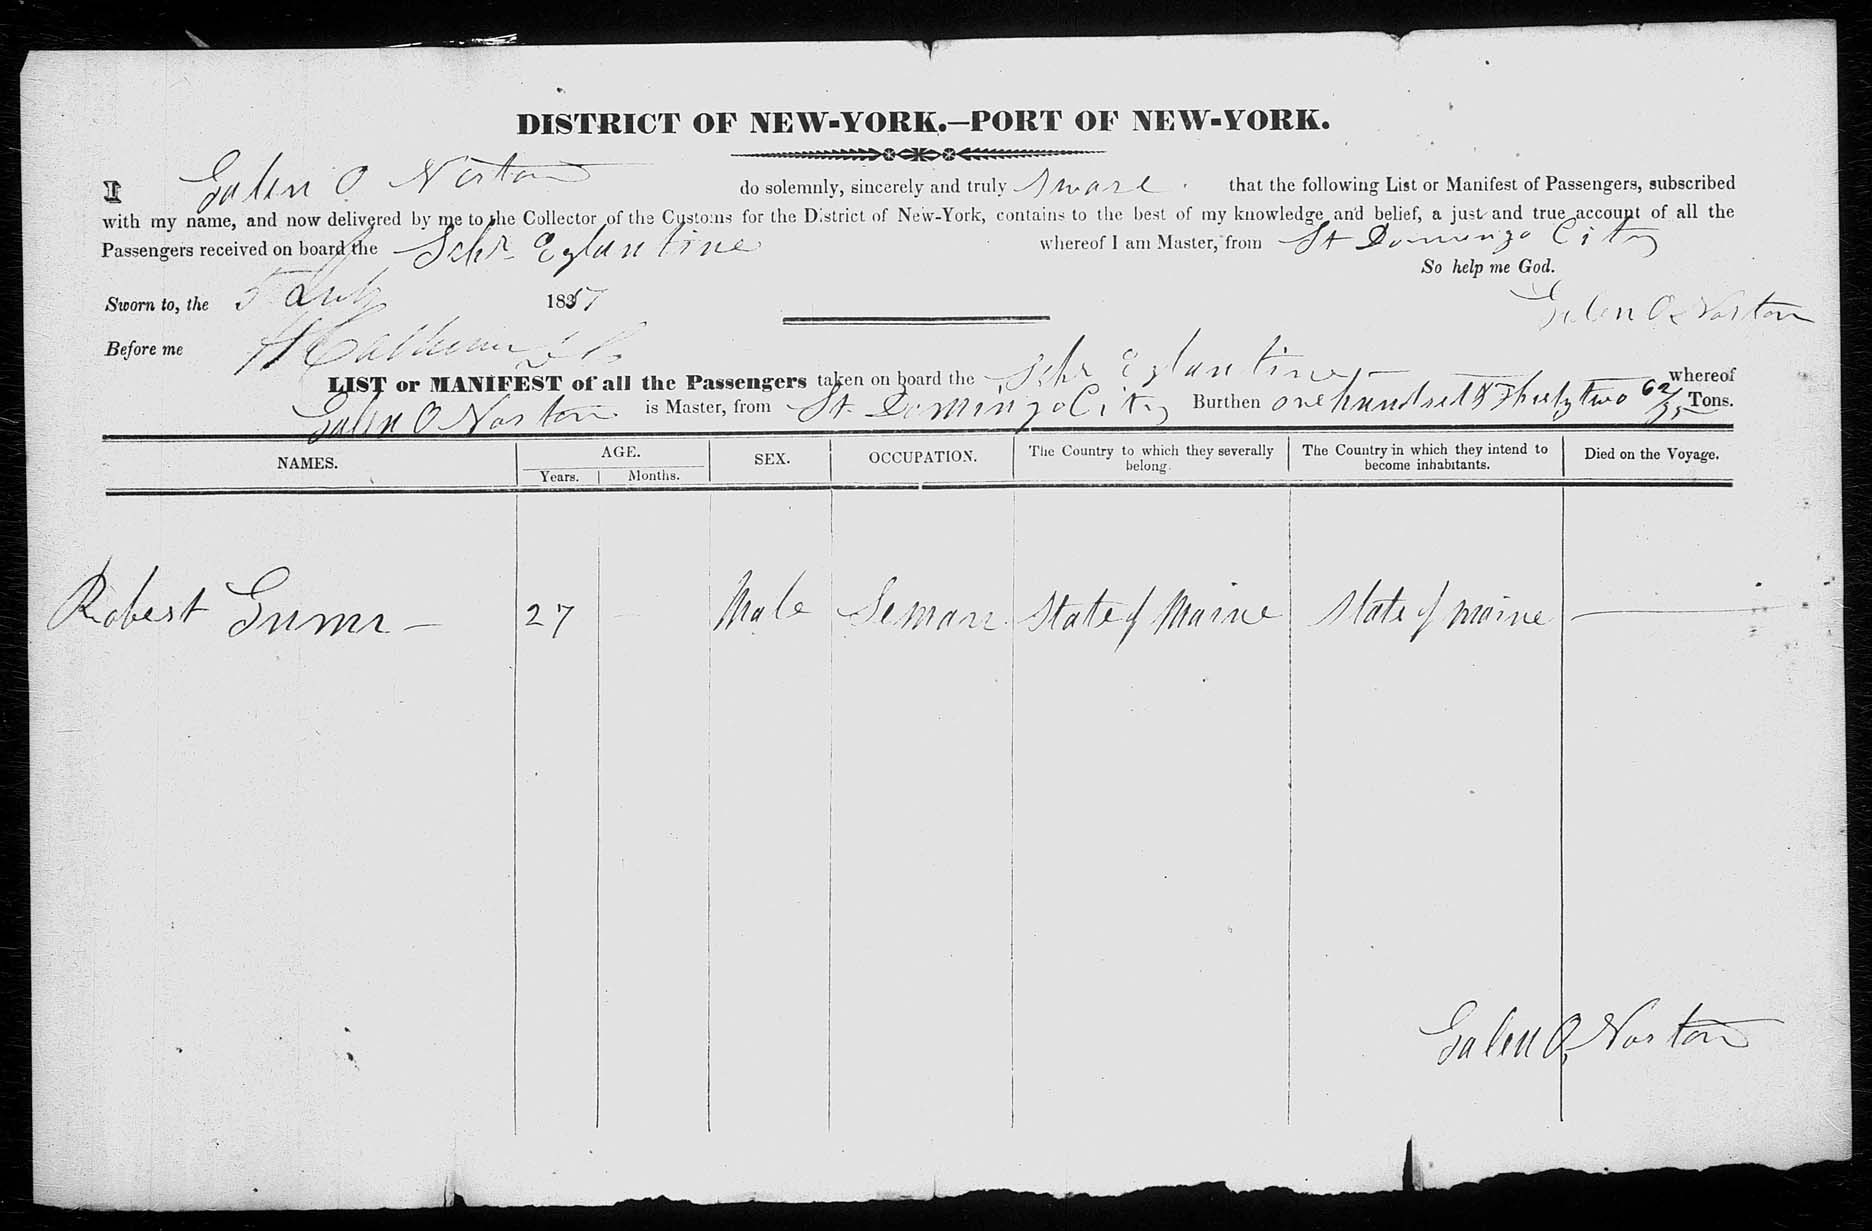 DISTRICT OF NEW-YORK.—PORT OF NEW-YORK.
I Galen O Norton do solemnly, sincerely and truly sware. that the following List or Manifest of Passengers, subscribed
with my name, and now delivered by me to the Collector of the Customs for the District of New-York, contains to the best of my knowledge and belief, a just and true account of all the
Passengers received on board the Schr Eglantine whereof I am Master, from St Domingo City
So help me God.
Sworn to, the 5 July 1837
Galen O Norton
Before me
LIST or MANIFEST of all the Passengers taken on board the Schr Eglantine whereof
Galen O Norton is Master, from St Domingo City Burthen one hundred & Thirty two 62/95 Tons.
NAMES. AGE. SEX. OCCUPATION. The Country to which they severally The Country in which they intend to Died on the Voyage.
Years. Months. belong. become inhabitants.
Robert — 27 — Male Seman State of Maine State of Maine —
Galen O Norton